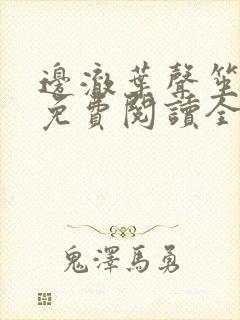 邊澈葉聲笙
免費閱讀全
鬼澤馬勇